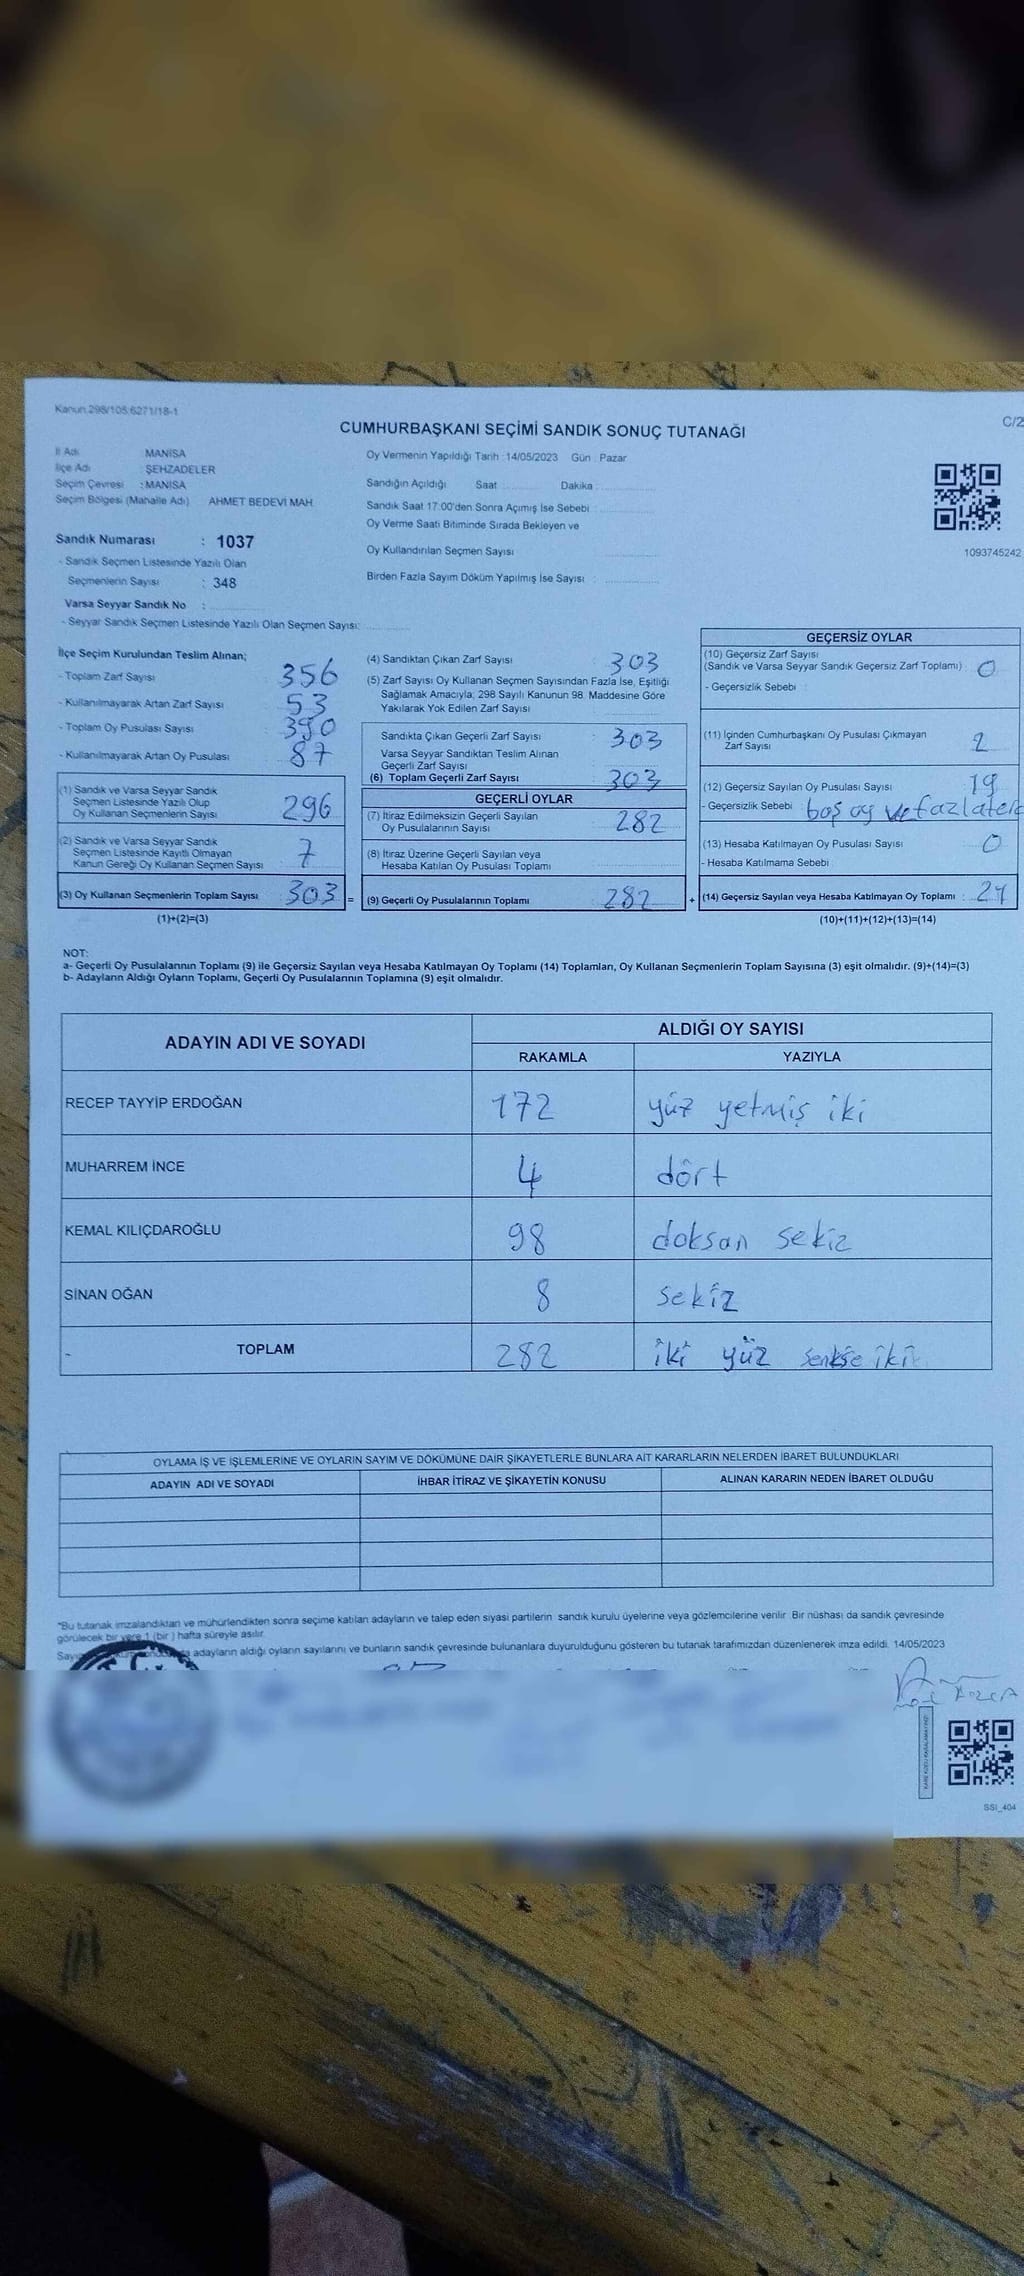 Kanun:298/105;6271/18-1
C/2
CUMHURBAŞKANI SEÇİMİ SANDIK SONUÇ TUTANAĞI
İl Adı : MANİSA
İlçe Adı : ŞEHZADELER
Seçim Çevresi : MANİSA
Seçim Bölgesi (Mahalle Adı) AHMET BEDEVİ MAH
Sandık Numarası : 1037
- Sandık Seçmen Listesinde Yazılı Olan
Seçmenlerin Sayısı : 348
Varsa Seyyar Sandık No :
- Seyyar Sandık Seçmen Listesinde Yazılı Olan Seçmen Sayısı:
Oy Vermenin Yapıldığı Tarih :14/05/2023 Gün : Pazar
Sandığın Açıldığı Saat Dakika :
Sandık Saat 17:00'den Sonra Açımış İse Sebebi :
Oy Verme Saati Bitiminde Sırada Bekleyen ve
Oy Kullandırılan Seçmen Sayısı
Birden Fazla Sayım Döküm Yapılmış İse Sayısı :
1093745242
İlçe Seçim Kurulundan Teslim Alınan;
- Toplam Zarf Sayısı : 356
- Kullanılmayarak Artan Zarf Sayısı : 53
- Toplam Oy Pusulası Sayısı : 390
- Kullanılmayarak Artan Oy Pusulası : 87
(1) Sandık ve Varsa Seyyar Sandık
Seçmen Listesinde Yazılı Olup
Oy Kullanan Seçmenlerin Sayısı : 296
(2) Sandık ve Varsa Seyyar Sandık
Seçmen Listesinde Kayıtlı Olmayan
Kanun Gereği Oy Kullanan Seçmen Sayısı : 7
(3) Oy Kullanan Seçmenlerin Toplam Sayısı : 303 =
(1)+(2)=(3)
(4) Sandıktan Çıkan Zarf Sayısı : 303
(5) Zarf Sayısı Oy Kullanan Seçmen Sayısından Fazla İse, Eşitliği
Sağlamak Amacıyla; 298 Sayılı Kanunun 98. Maddesine Göre
Yakılarak Yok Edilen Zarf Sayısı
Sandıkta Çıkan Geçerli Zarf Sayısı : 303
Varsa Seyyar Sandıktan Teslim Alınan
Geçerli Zarf Sayısı
(6) Toplam Geçerli Zarf Sayısı : 303
GEÇERLİ OYLAR
(7) İtiraz Edilmeksizin Geçerli Sayılan
Oy Pusulalarının Sayısı : 282
(8) İtiraz Üzerine Geçerli Sayılan veya
Hesaba Katılan Oy Pusulası Toplamı
(9) Geçerli Oy Pusulalarının Toplamı : 282 +
GEÇERSİZ OYLAR
(10) Geçersiz Zarf Sayısı
(Sandık ve Varsa Seyyar Sandık Geçersiz Zarf Toplamı) : 0
- Geçersizlik Sebebi :
(11) İçinden Cumhurbaşkanı Oy Pusulası Çıkmayan
Zarf Sayısı : 2
(12) Geçersiz Sayılan Oy Pusulası Sayısı : 19
- Geçersizlik Sebebi : boş oy ve fazla
(13) Hesaba Katılmayan Oy Pusulası Sayısı : 0
- Hesaba Katılmama Sebebi :
(14) Geçersiz Sayılan veya Hesaba Katılmayan Oy Toplamı :
(10)+(11)+(12)+(13)=(14)
NOT:
a- Geçerli Oy Pusulalarının Toplamı (9) ile Geçersiz Sayılan veya Hesaba Katılmayan Oy Toplamı (14) Toplamları, Oy Kullanan Seçmenlerin Toplam Sayısına (3) eşit olmalıdır. (9)+(14)=(3)
b- Adayların Aldığı Oyların Toplamı, Geçerli Oy Pusulalarının Toplamına (9) eşit olmalıdır.
ADAYIN ADI VE SOYADI ALDIĞI OY SAYISI
RAKAMLA YAZIYLA
RECEP TAYYİP ERDOĞAN 172 yüz yetmiş iki
MUHARREM İNCE 4 dört
KEMAL KILIÇDAROĞLU 98 doksan sekiz
SİNAN OĞAN 8 sekiz
TOPLAM 282 iki yüz iki
OYLAMA İŞ VE İŞLEMLERİNE VE OYLARIN SAYIM VE DÖKÜMÜNE DAİR ŞİKAYETLERLE BUNLARA AİT KARARLARIN NELERDEN İBARET BULUNDUKLARI
ADAYIN ADI VE SOYADI İHBAR İTİRAZ VE ŞİKAYETİN KONUSU ALINAN KARARIN NEDEN İBARET OLDUĞU
*Bu tutanak imzalandıktan ve mühürlendikten sonra seçime katılan adayların ve talep eden siyasi partilerin sandık kurulu üyelerine veya gözlemcilerine verilir. Bir nüshası da sandık çevresinde
görülecek bir yere 1 (bir ) hafta süreyle asılır.
adayların aldığı oyların sayılarını ve bunların sandık çevresinde bulunanlara duyurulduğunu gösteren bu tutanak tarafımızdan düzenlenerek imza edildi. 14/05/2023
SSI_404